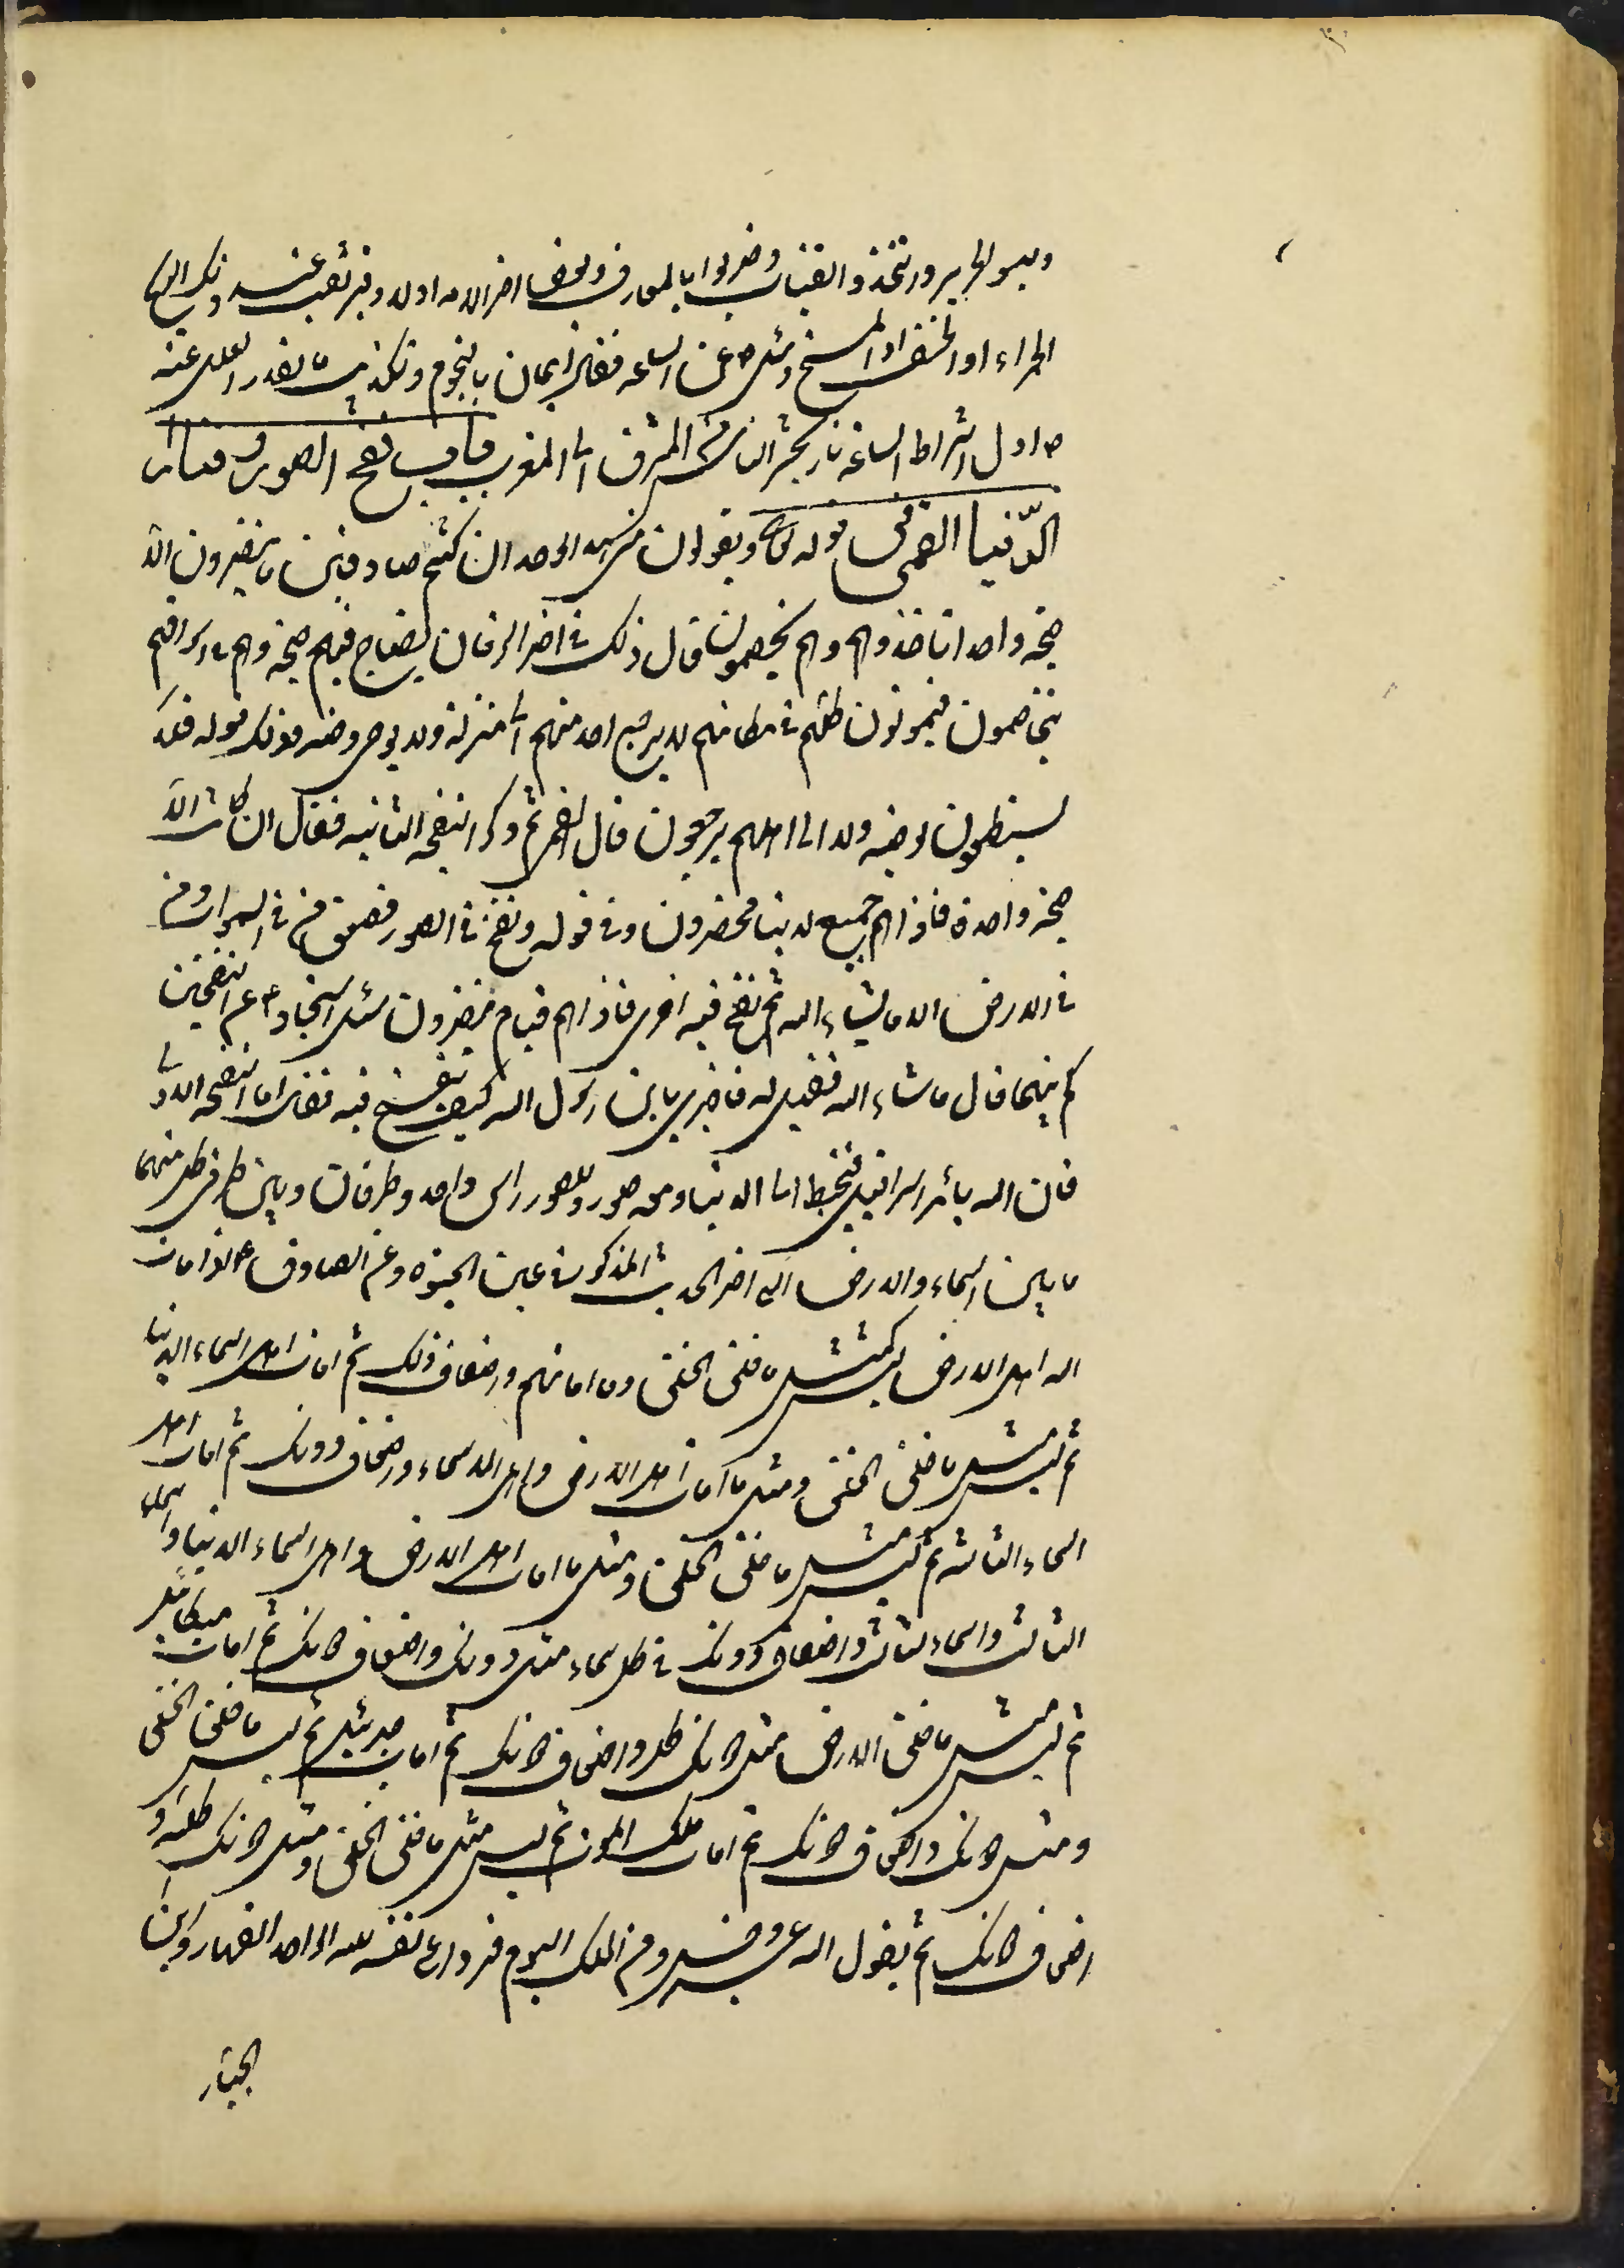 ولبسوا الحرير واتخذوا القينات وضربوا بالمعازف ولعن اخر الامة اولها فليرتقب عند ذلك الريح
الحمراء او الخسف او المسخ وسئل ص عن الساعة فقال ايمان بالنجوم وتكذيب بالقدر
ص اول اشراط الساعة نار تحشر الناس من المشرق الى المغرب باب نفخ الصور وفناء
الدّنيا القمى قوله تع ويقولون متى هذا الوعد ان كنتم صادقين ما ينظرون الا
صيحة واحدة تاخذهم وهم يخصمون قال ذلك في اخر الزمان يصاح فيهم صيحة وهم في اسواقهم
يتخاصمون فيموتون كلهم في مكانهم لا يرجع احد منهم الى منزله ولا يوصى بوصية وذلك قوله فلا
يستطيعون توصية ولا الى اهلهم يرجعون قال القمى ثم ذكر النفخة الثانية فقال ان كانت الا
صيحة واحدة فاذا هم جميع لدينا محضرون وفي قوله ونفخ في الصور فصعق من في السموات ومن
في الارض الا ما شاء الله ثم نفخ فيه اخرى فاذا هم قيام ينظرون سئل السجاد ع عن النفختين
كم بينهما قال ما شاء الله فقيل له فاخبرني يا بن رسول الله كيف ينفخ فيه فقال اما النفخة الاولى
فان الله يأمر اسرافيل فيهبط الى الدنيا ومعه صور وللصور راس واحد وطرفان وبين طرف كل منهما
ما بين السماء والارض الى اخر الحديث المذكور في عين الحيوة وعن الصادق ع اذا امات
الله اهل الارض لبث كمثل ما خلق الخلق وما اماتهم واضعاف ذلك ثم امات اهل السماء الدنيا
ثم لبث مثل ما خلق الخلق ومثل ما امات اهل الارض واهل السماء واضعاف ذلك ثم امات اهل
السماء الثانية ثم لبث مثل ما خلق الخلق ومثل ما امات اهل الارض واهل السماء الدنيا والسماء
الثانية والسماء الثالثة واضعاف ذلك في كل سماء مثل ذلك واضعاف ذلك ثم امات ميكائيل
ثم لبث مثل ما خلق الارض مثل ذلك كله واضعاف ذلك ثم امات جبرئيل ثم لبث ما خلق الخلق
ومثل ذلك واضعاف ذلك ثم امات ملك الموت ثم لبث مثل ما خلق الخلق ومثل ذلك كله و
اضعاف ذلك ثم يقول الله عز وجل لمن الملك اليوم فرد على نفسه لله الواحد القهار واين
الجبار